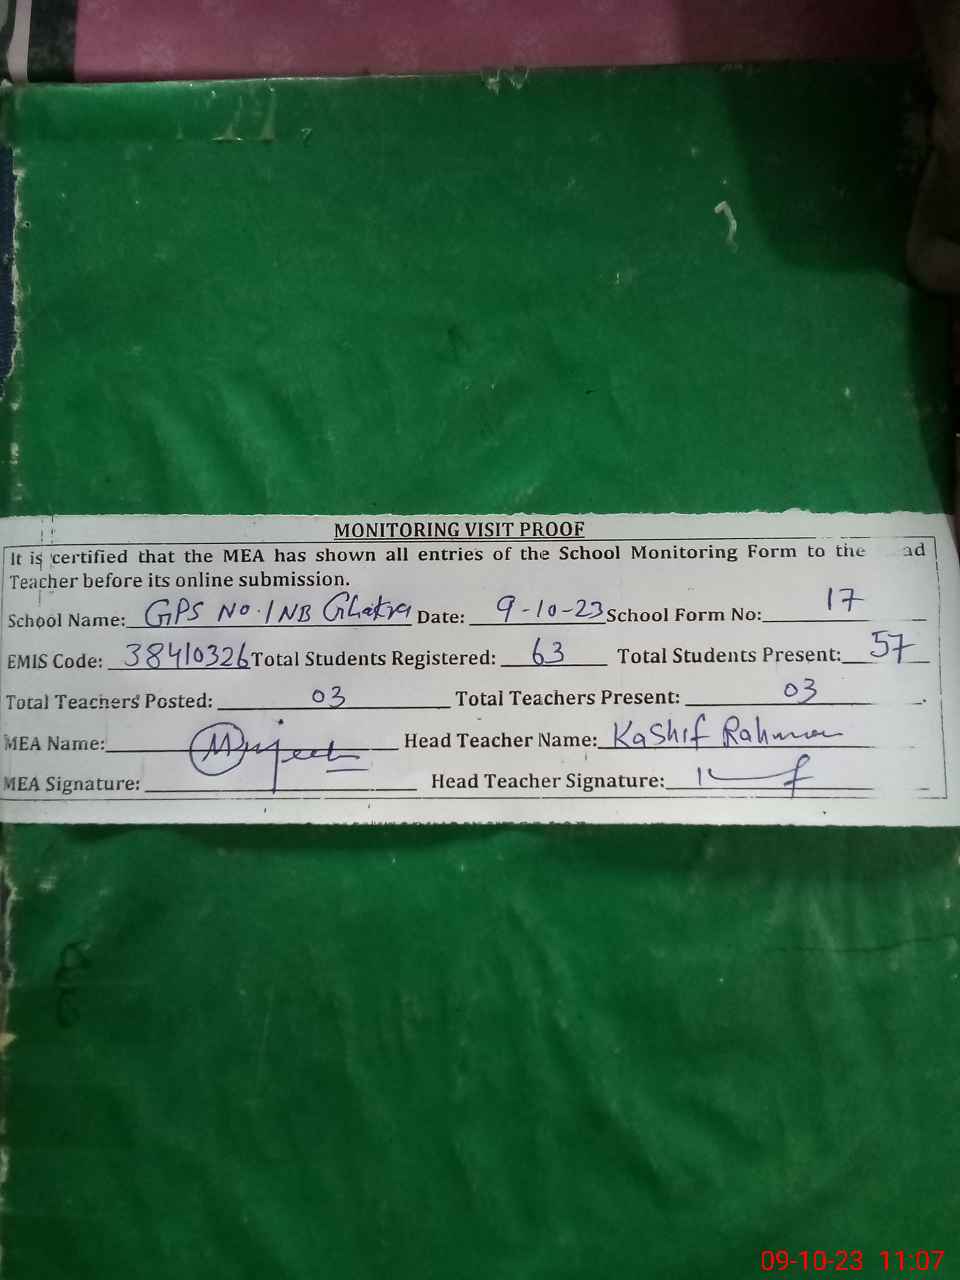 MONITORING VISIT PROOF
It is certified that the MEA has shown all entries of the School Monitoring Form to the ad
Teacher before its online submission.
School Name: GPS No.1 NB Ghakra Date: 9-10-23 School Form No: 17
EMIS Code: 38410326 Total Students Registered: 63 Total Students Present: 57
Total Teachers Posted: 03 Total Teachers Present: 03
MEA Name: Mujeeb Head Teacher Name: Kashif Rahman
MEA Signature: Head Teacher Signature:
09-10-23 11:07